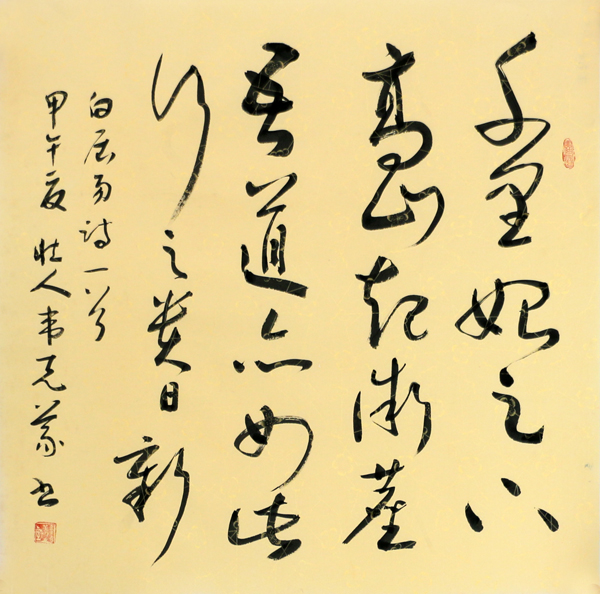 千里始足下
高山起微塵
吾道亦如此
行之貴日新
白居易詩一首
甲午夏 壮人韦克 书